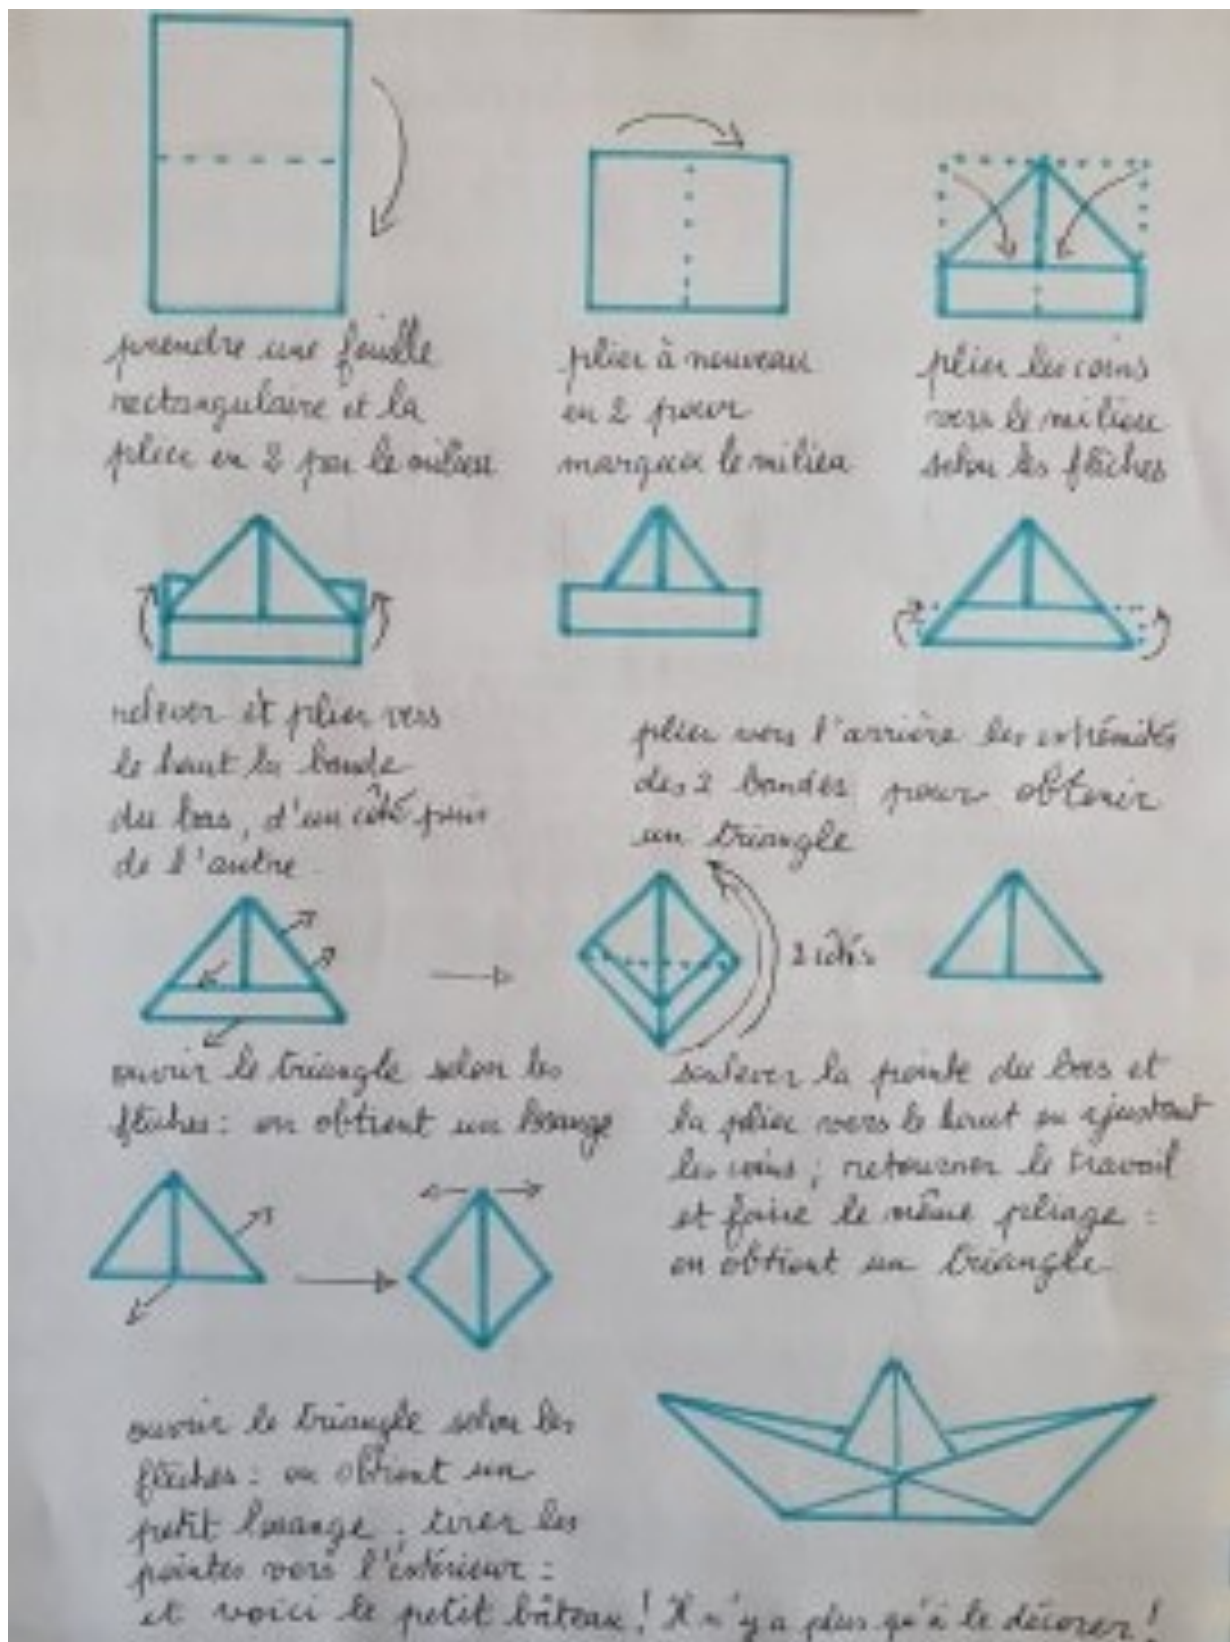 prendre une feuille
rectangulaire et la
plier en 2 par le milieu
plier à nouveau
en 2 pour
marquer le milieu
plier les coins
vers le milieu
selon les flèches
relever et plier vers
le haut la bande
du bas, d'un côté puis
de l'autre
plier vers l'arrière les extrémités
des 2 bandes pour obtenir
un triangle
2 côtés
ouvrir le triangle selon les
flèches : on obtient un losange
soulever la pointe du bas et
la plier vers le haut en ajustant
les coins ; retourner le travail
et faire le même pliage :
on obtient un triangle
ouvrir le triangle selon les
flèches : on obtient un
petit losange ; tirer les
pointes vers l'extérieur :
et voici le petit bâteau ! Il n'y a plus qu'à le décorer !